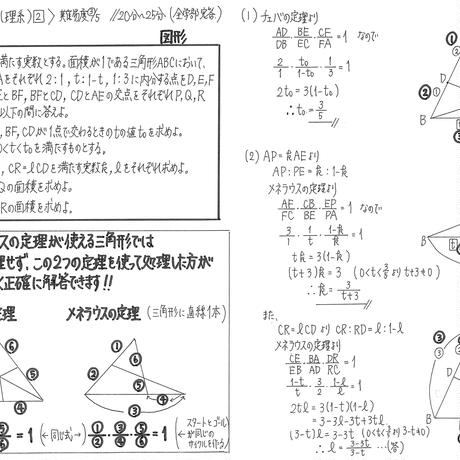 (理系) 2 > 実質易度 3/5 // 20分~25分 (全学部完答)
図形
満たす実数とする。面積が1である三角形ABCにおいて、
Aをそれぞれ2:1, t:1-t, 1:3に内分する点をD,E,F
EとBF, BFとCD, CDとAEの交点をそれぞれP,Q,R
以下の問に答えよ。
,BF,CDが1点で交わるときのtの値t₀を求めよ。
<t<t₀を満たすものとする。
, CR=ℓCDを満たす実数k, ℓをそれぞれ求めよ。
Qの面積を求めよ。
Rの面積を求めよ。
スの定理が使える三角形では
せず、この2つの定理を使って処理した方が
く正確に解答できます!!
定理 メネラウスの定理 (三角形に直線1本)
① ⑥ ② ⑤ ④ ③
⑤/⑥ = 1 (←同じ式→) ①/② · ③/④ · ⑤/⑥ = 1 (← スタートとゴールが同じの
(1) チェバの定理より
AD/DB · BE/EC · CF/FA = 1 なので
2/1 · t₀/(1-t₀) · 1/3 = 1
2t₀ = 3(1-t₀)
∴ t₀ = 3/5
(2) AP=kAEより
AP:PE = k:1-k
メネラウスの定理より
AF/FC · CB/BE · EP/PA = 1 なので
3/1 · 1/t · (1-k)/k = 1
tk = 3(1-k)
(t+3)k = 3 (0<t<3/5よりt+3≠0)
∴ k = 3/(t+3)
また、
CR=ℓCDより CR:RD = ℓ:1-ℓ
メネラウスの定理より
CE/EB · BA/AD · DR/RC = 1
(1-t)/t · 3/2 · (1-ℓ)/ℓ = 1
2tℓ = 3(1-t)(1-ℓ)
= 3-3ℓ-3t+3tℓ
(3-t)ℓ = 3-3t (0<t<3/5より3-t≠0)
∴ ℓ = (3-3t)/(3-t) …(答)
① D ② B
B
B